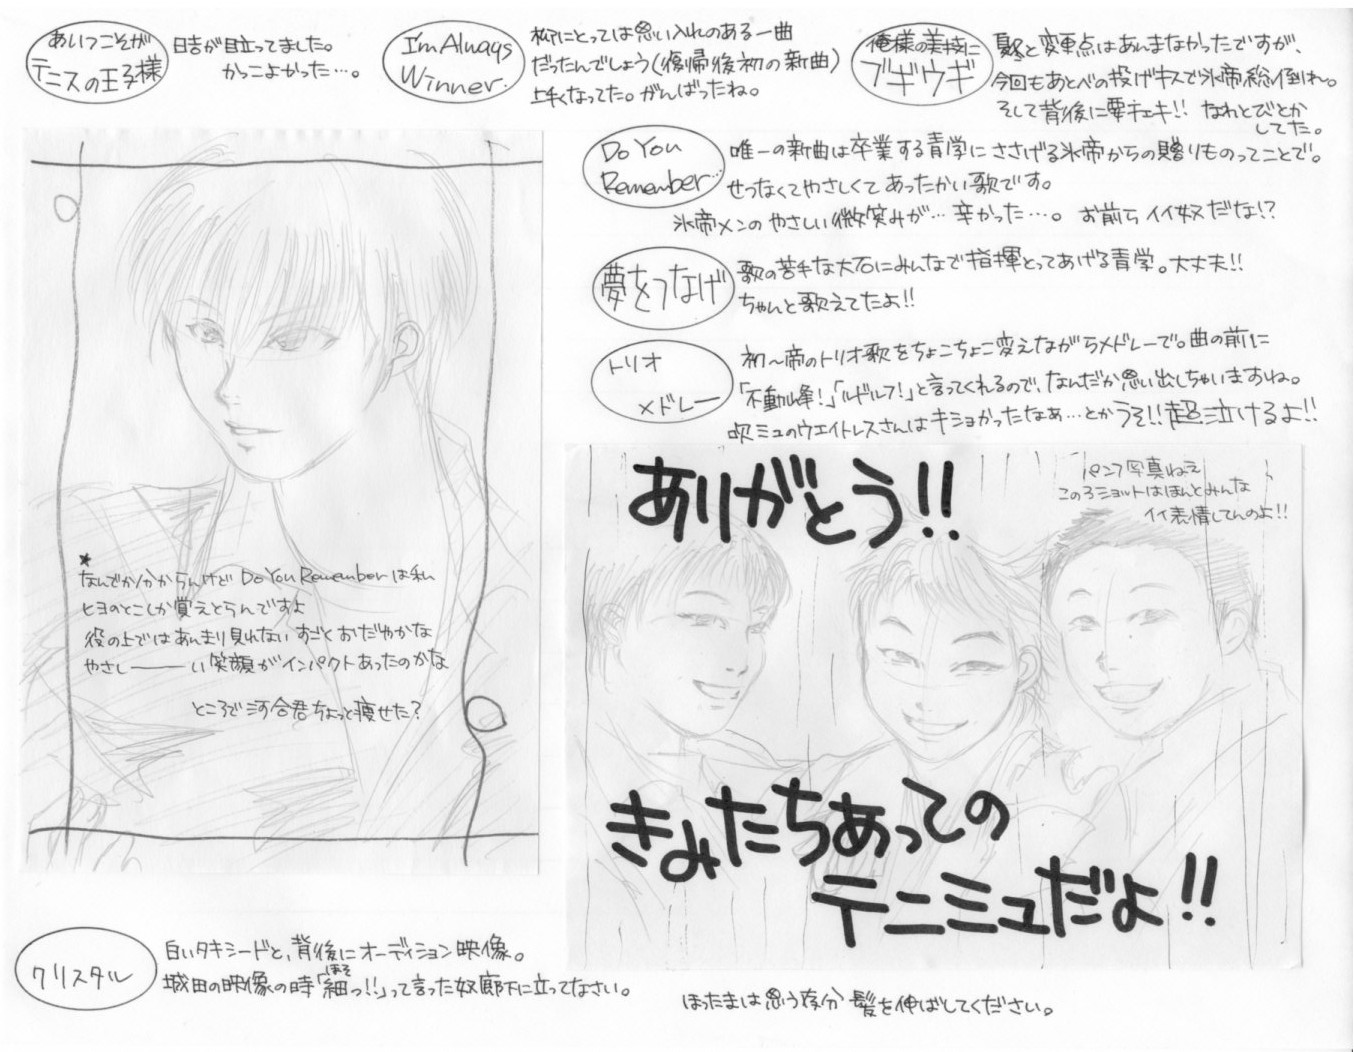 あいつこそが
テニスの王子様
日吉が目立ってました。
かっこよかった…。
I'm Always
Winner.
柳にとっては思い入れのある一曲
だったんでしょう(復帰後初の新曲)
上手くなってた。がんばったね。
俺様の美技に
ブギウギ
夏冬と変更点はあんまなかったですが、
今回もあとべの投げキスで氷帝総倒れ。
そして背後に要チェキ!! なわとびとか
してた。
Do You
Remember…
唯一の新曲は卒業する青学にささげる氷帝からの贈りものってことで。
せつなくてやさしくてあったかい歌です。
氷帝メンのやさしい微笑みが…辛かった…。 お前らイイ奴だな!?
夢をつなげ
歌の苦手な大石にみんなで指揮とってあげる青学。大丈夫!!
ちゃんと歌えてたよ!!
トリオ
メドレー
初〜帝のトリオ歌をちょこちょこ変えながらメドレーで。曲の前に
「不動峰!」「ルドルフ!」と言ってくれるので、なんだか思い出しちゃいますね。
吹ミュのウエイトレスさんはキショかったなぁ…とかうそ!!超泣けるよ!!
ありがとう!!
パンフ写真ねえ
この3ショットはほんとみんな
イイ表情してんのよ!!
*
なんでか分からんけど Do You Rememberは私
ヒヨのとこしか覚えとらんですよ
役の上ではあんまり見れない すごくおだやかな
やさし――い笑顔がインパクトあったのかな
ところで河合君ちょっと痩せた?
きみたちあっての
テニミュだよ!!
クリスタル
白いタキシードと、背後にオーディション映像。
城田の映像の時「細っ!!」って言った奴廊下に立ってなさい。
ほそ
ほったまは思う存分 髪を伸ばしてください。